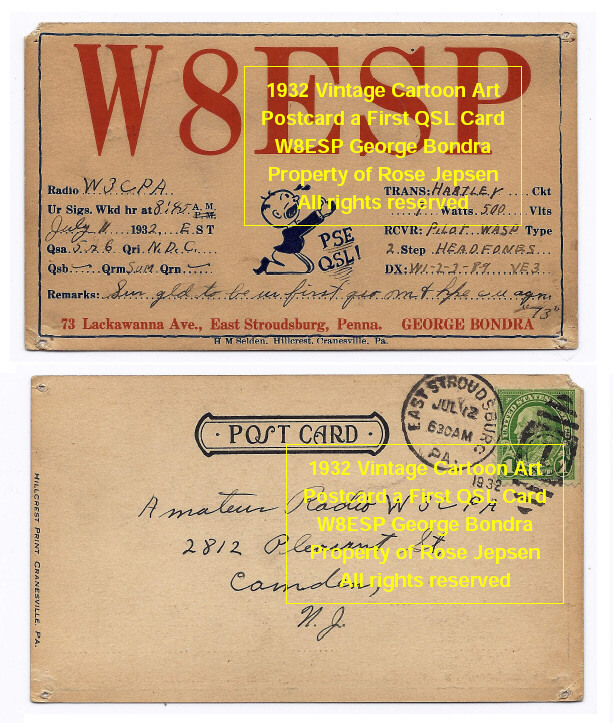 W8ESP
1932 Vintage Cartoon Art
Postcard a First QSL Card
W8ESP George Bondra
Property of Rose Jepsen
All rights reserved
Radio W3CPA
Ur Sigs. Wkd hr at 8:45 A.M. P.M.
July 11 1932, E.S T
Qsa 5 R 6 Qri N.D.C.
Qsb Qrm Sum Qrn
PSE
QSL!
TRANS: HARTLEY Ckt
Watts. 500 Vlts
RCVR: PILOT WASP Type
2 Step HEADFONES
DX: W1-2-3-89 VE3
Remarks: Sure gld to be ur first qso om & hpe cu agn
"73"
73 Lackawanna Ave., East Stroudsburg, Penna. GEORGE BONDRA
H M Selden, Hillcrest, Cranesville, Pa.
POST CARD
EAST STROUDSBURG
JUL 12
630AM
1932
PA.
UNITED STATES
HILLCREST PRINT, CRANESVILLE, PA.
1932 Vintage Cartoon Art
Postcard a First QSL Card
W8ESP George Bondra
Property of Rose Jepsen
All rights reserved
Amateur Radio W3CPA
2812 Pleasant St,
Camden,
N.J.